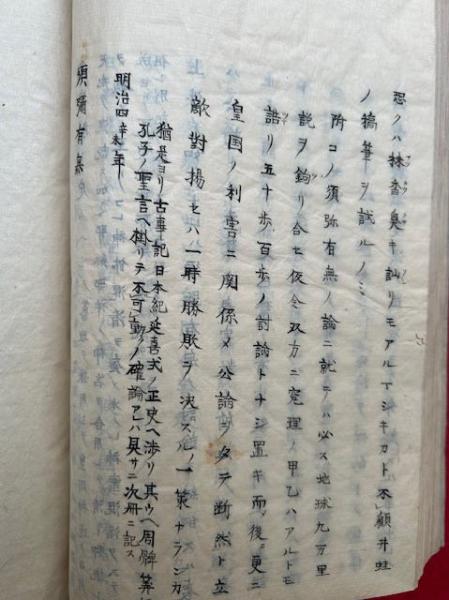 恐クハ抹香臭キ訕リノモアル丁シキカト不顧井蛙
ノ禿筆ヲ試ルノミ
附コノ須弥有無ノ論ニ就テハ必ス地球九万里
説ヲ鉤リ合セ仮令双方ニ究理ノ甲乙ハアルトモ
語リ五十歩百歩ノ討論トナシ置キ而後更ニ
皇国ノ利害ニ関係メ公論ヲタテ断然ト立
敵対揚セハ一時勝敗ヲ決スルノ一策ナランカ
猶是ヨリ古事記日本紀延喜式ノ正史ヘ渉リ其ウヘ周髀算
孔子ノ聖言ヘ掛リテ不可動ノ確論乙ハ具サニ次冊ニ記ス
明治四辛未年
須弥有無